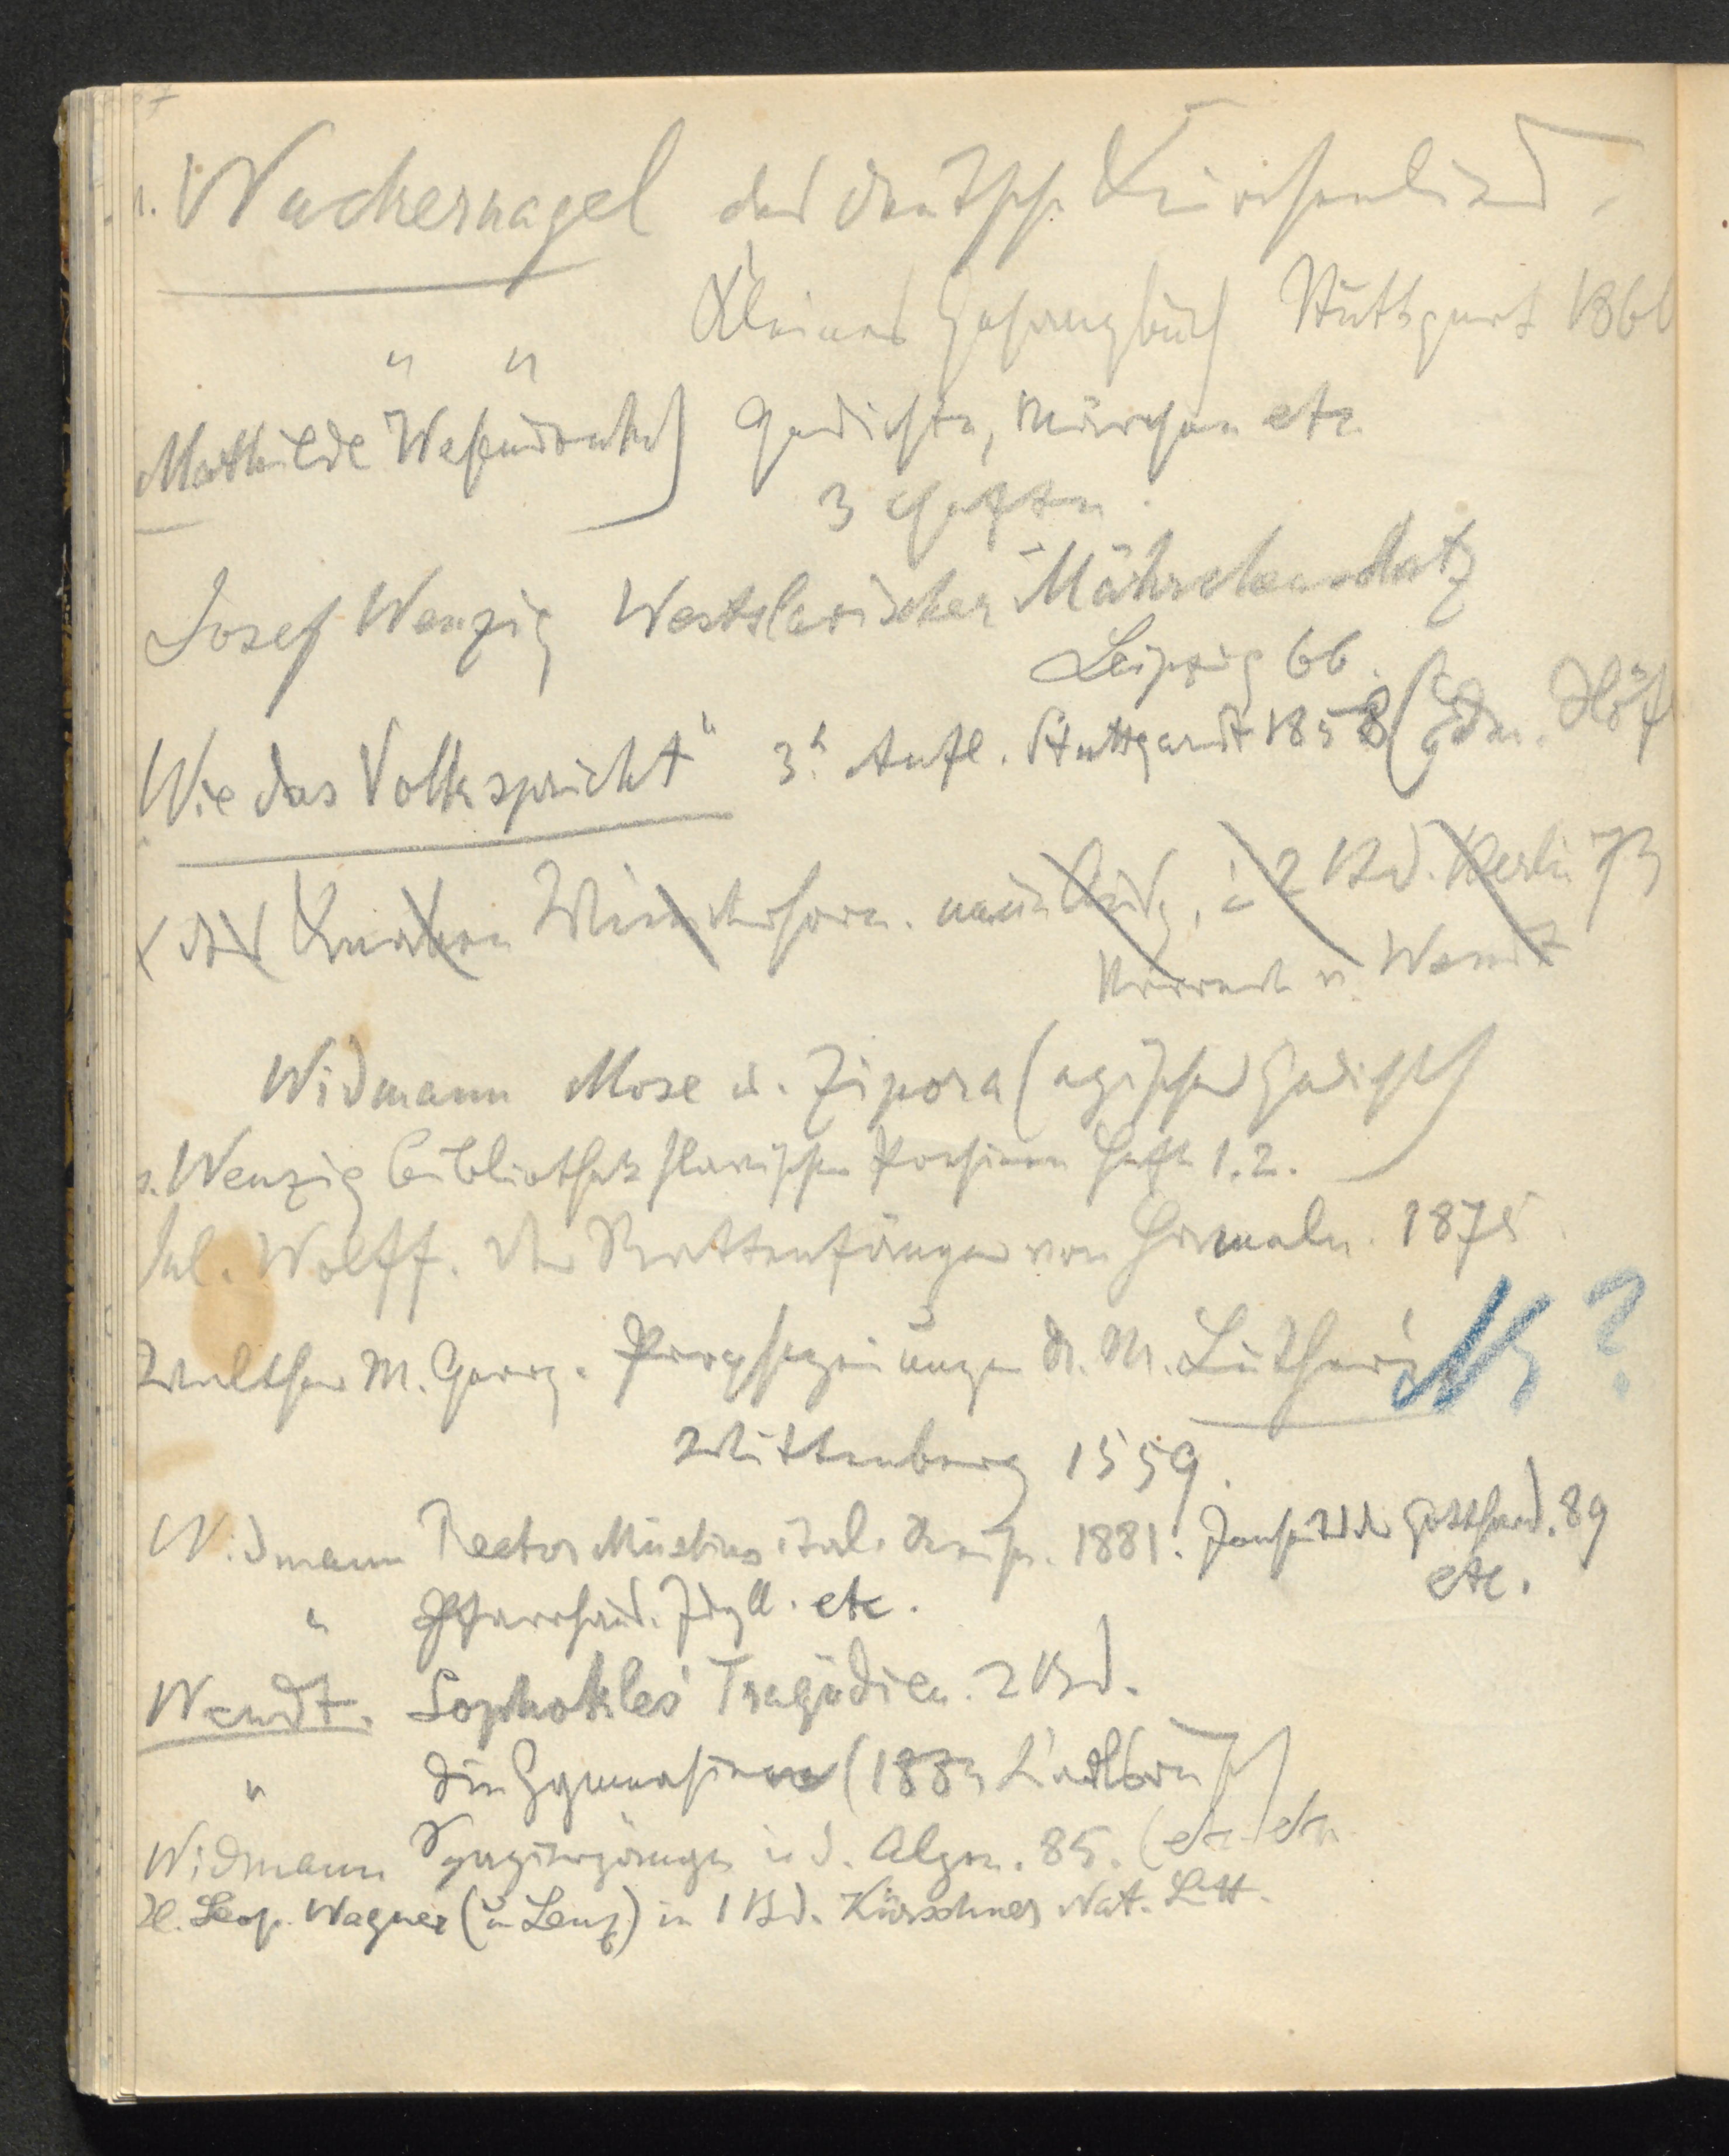 Wackernagel das deutsche Kirchenlied.
" " Kleines Gesangbuch Stuttgart 1860
Mathilde Wesendonck) Gedichte, Märchen etc
3 Hefte.
Josef Wenzig Westslavischer Mährchenschatz
Leipzig 66.
Wie das Volk spricht" 3. Aufl. Stuttgardt 1858 (Edm. Höf
des Knaben Wunderhorn. neue Ausg, in 2 Bd. Berlin 73
u. Wendt
Widmann Mose u. Zipora (episches Gedicht)
Wenzig Bibliothek slavischer Poesieen Heft 1.2.
Jul. Wolff. Der Rattenfänger von Hameln. 1875
Walther M. Georg. Prophezeiungen Dr. M. Luther's N ?
Wittenberg 1559.
Widmann Rector Müslins ital. Reise. 1881. Jenseits des Gotthard. 89
etc.
" Pfarrhaus. Idyll. etc.
Wendt. Sophokles' Tragödien. 2 Bd.
" Die Gymnasien (1883
Widmann Spaziergänge in d. Alpen. 85. (etc etc
H. Leop. Wagner (u Lenz) in 1 Bd. Kürschner Nat. Litt.